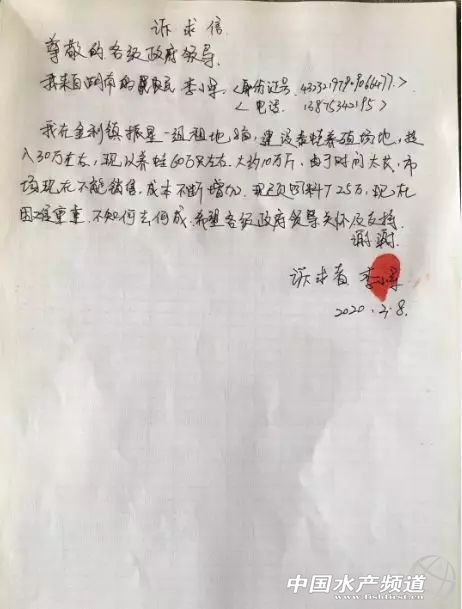 诉求信
尊敬的各级政府领导
我来自湖南的农民 李小军 <身份证号
<电话 13875342195>
我在金利镇振星一组租地8亩,建设养殖场地,投
入30万左右,现以养蛙60万只左右.大约10万斤.由于时间太长,市
场现在不能销售,成本不断增加.现欠饲料7.25万,现在
困难重重.不知何去何成.希望各级政府领导关怀及支持.
谢谢.
诉求者 李小军
2020.2.8.
中国水产频道
www.fishfirst.cn